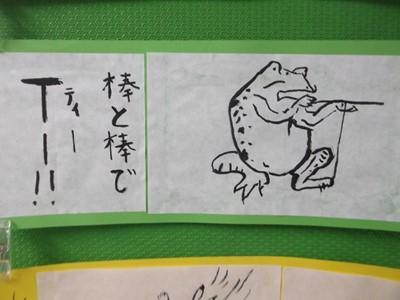 棒と棒で
ティー
T ー!!